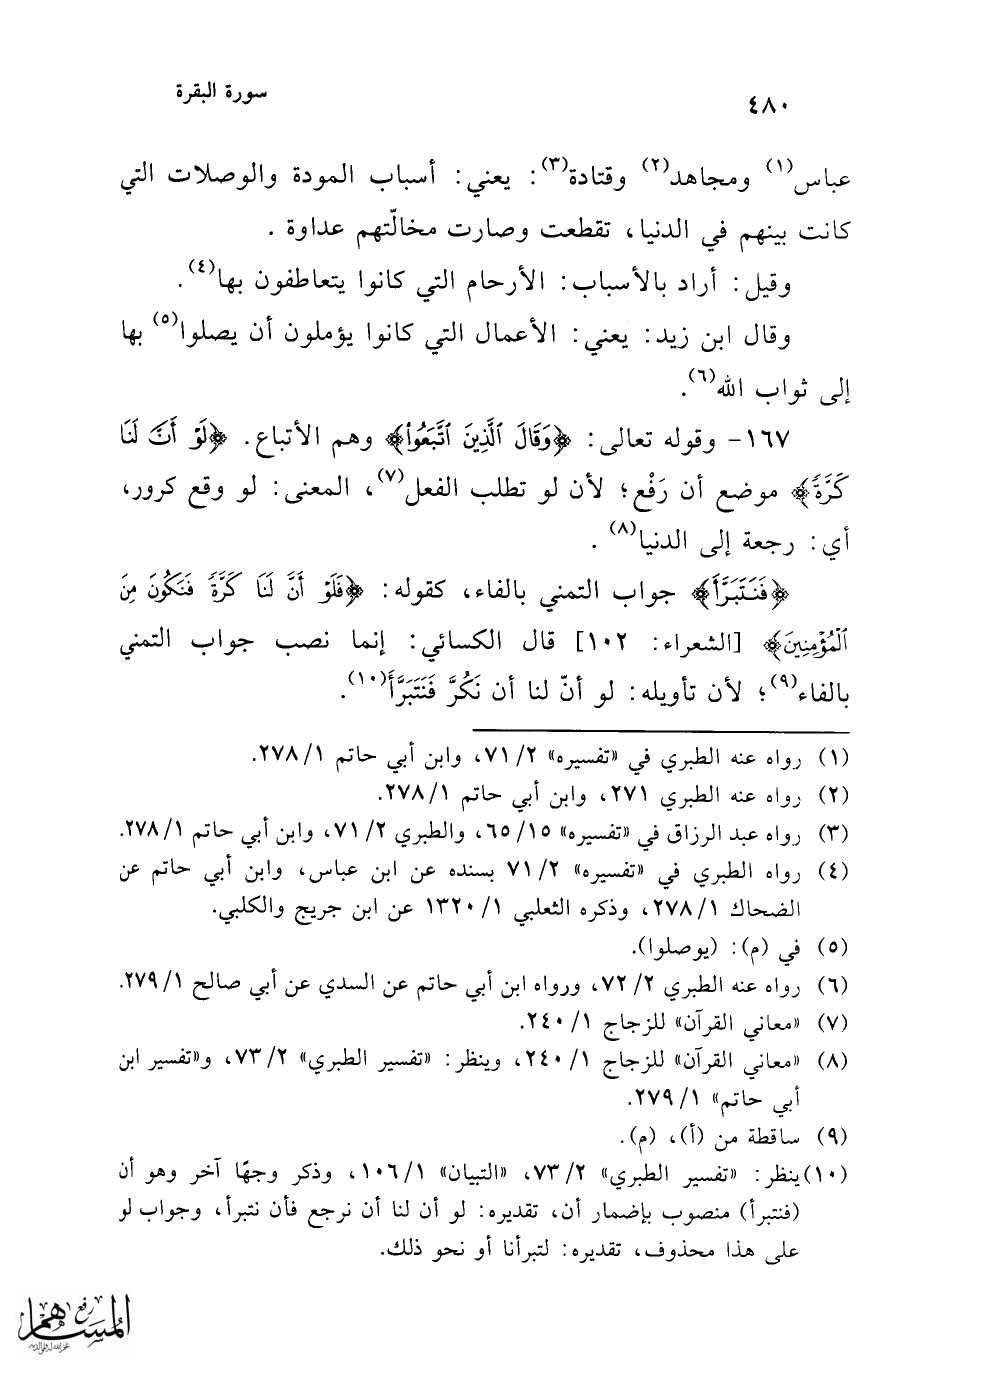 ٤٨٠ سورة البقرة
عباس(١) ومجاهد(٢) وقتادة(٣): يعني: أسباب المودة والوصلات التي
كانت بينهم في الدنيا، تقطعت وصارت مخالّتهم عداوة .
وقيل: أراد بالأسباب: الأرحام التي كانوا يتعاطفون بها(٤).
وقال ابن زيد: يعني: الأعمال التي كانوا يؤملون أن يصلوا(٥) بها
إلى ثواب الله(٦).
١٦٧- وقوله تعالى: ﴿وَقَالَ ٱلَّذِينَ ٱتَّبَعُواْ﴾ وهم الأتباع. ﴿لَوۡ أَنَّ لَنَا
كَرَّةً﴾ موضع أن رَفْع؛ لأن لو تطلب الفعل(٧)، المعنى: لو وقع كرور،
أي: رجعة إلى الدنيا(٨) .
﴿فَنَتَبَرَّأَ﴾ جواب التمني بالفاء، كقوله: ﴿فَلَوۡ أَنَّ لَنَا كَرَّةً فَنَكُونَ مِنَ
ٱلۡمُؤۡمِنِينَ﴾ [الشعراء: ١٠٢] قال الكسائي: إنما نصب جواب التمني
بالفاء(٩)؛ لأن تأويله: لو أنّ لنا أن نَكُرَّ فَنَتَبَرَّأَ(١٠).
(١) رواه عنه الطبري في «تفسيره» ٢/ ٧١، وابن أبي حاتم ١/ ٢٧٨.
(٢) رواه عنه الطبري ٢٧١، وابن أبي حاتم ١/ ٢٧٨.
(٣) رواه عبد الرزاق في «تفسيره» ١٥/ ٦٥، والطبري ٢/ ٧١، وابن أبي حاتم ١/ ٢٧٨.
(٤) رواه الطبري في «تفسيره» ٢/ ٧١ بسنده عن ابن عباس، وابن أبي حاتم عن
الضحاك ١/ ٢٧٨، وذكره الثعلبي ١/ ١٣٢٠ عن ابن جريج والكلبي.
(٥) في (م): (يوصلوا).
(٦) رواه عنه الطبري ٢/ ٧٢، ورواه ابن أبي حاتم عن السدي عن أبي صالح ١/ ٢٧٩.
(٧) «معاني القرآن» للزجاج ١/ ٢٤٠.
(٨) «معاني القرآن» للزجاج ١/ ٢٤٠، وينظر: «تفسير الطبري» ٢/ ٧٣، و«تفسير ابن
أبي حاتم» ١/ ٢٧٩.
(٩) ساقطة من (أ)، (م).
(١٠) ينظر: «تفسير الطبري» ٢/ ٧٣، «التبيان» ١/ ١٠٦، وذكر وجهًا آخر وهو أن
(فنتبرأ) منصوب بإضمار أن، تقديره: لو أن لنا أن نرجع فأن نتبرأ، وجواب لو
على هذا محذوف، تقديره: لتبرأنا أو نحو ذلك.